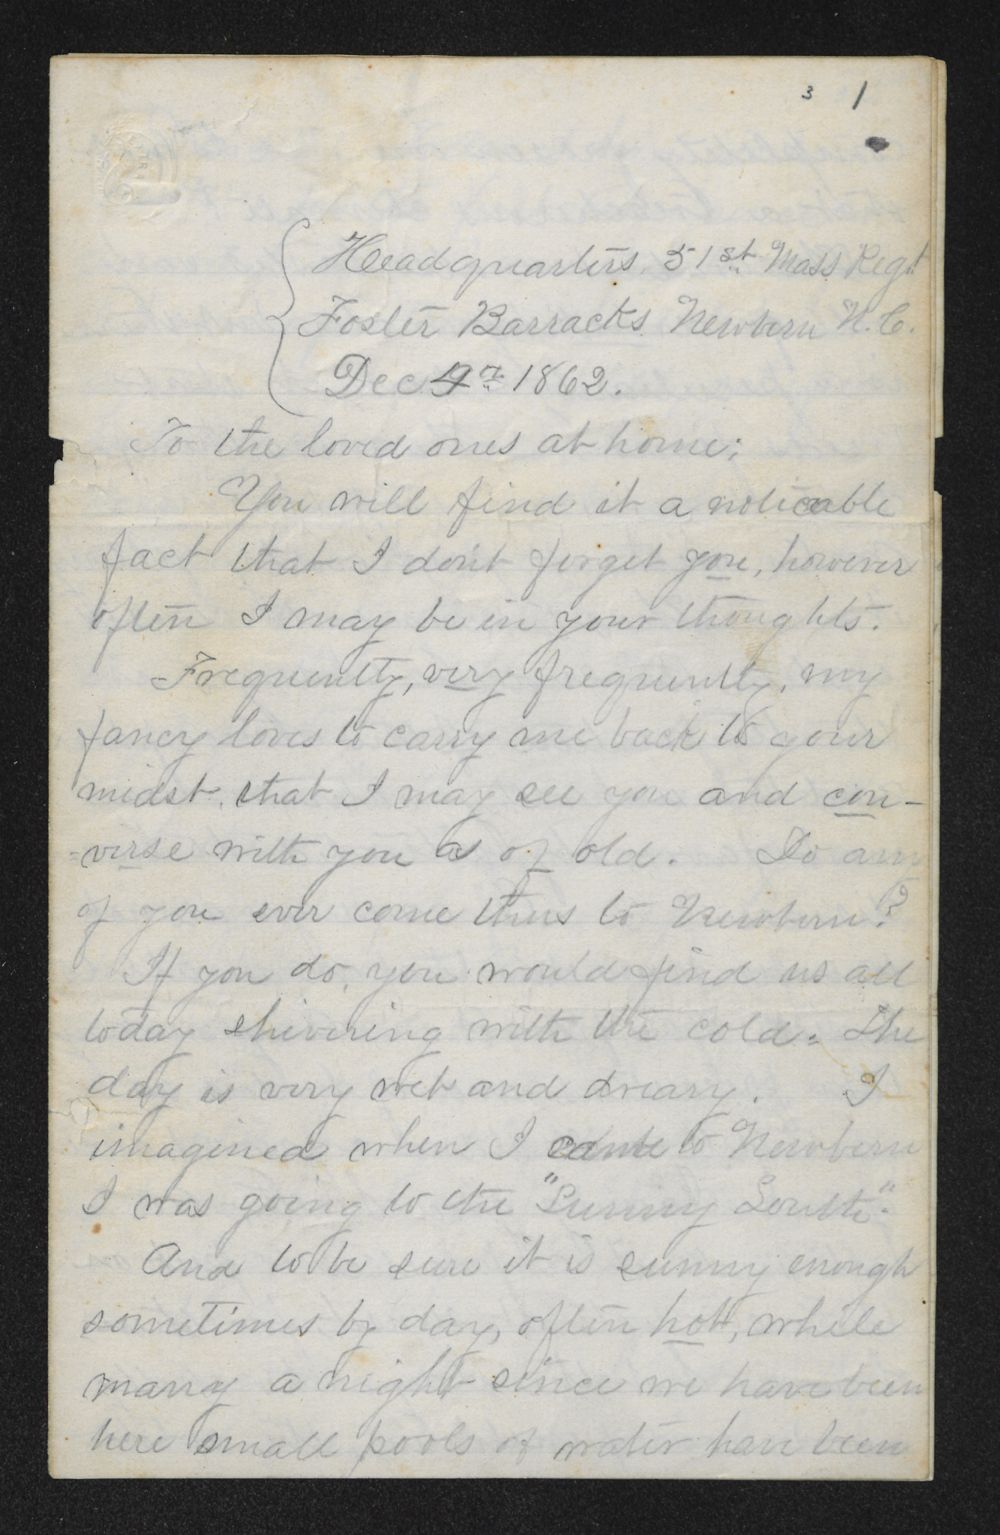 3 1
Headquarters 51st Mass Regt
Foster Barracks Newbern N.C.
Dec 1862.
To the loved ones at home;
You will find it a noticable
fact that I don't forget you, however
often I may be in your thoughts.
Frequently, very frequently, my
fancy loves to carry me back to your
midst, that I may see you and con-
=verse with you as of old. Do any
of you ever come thus to Newbern?
If you do, you would find us all
today shivering with the cold. The
day is very wet and dreary. I
imagined when I came to Newbern
I was going to the "Sunny South".
And to be sure it is sunny enough
sometimes by day, often hot, while
many a night since we have been
here small pools of water have been